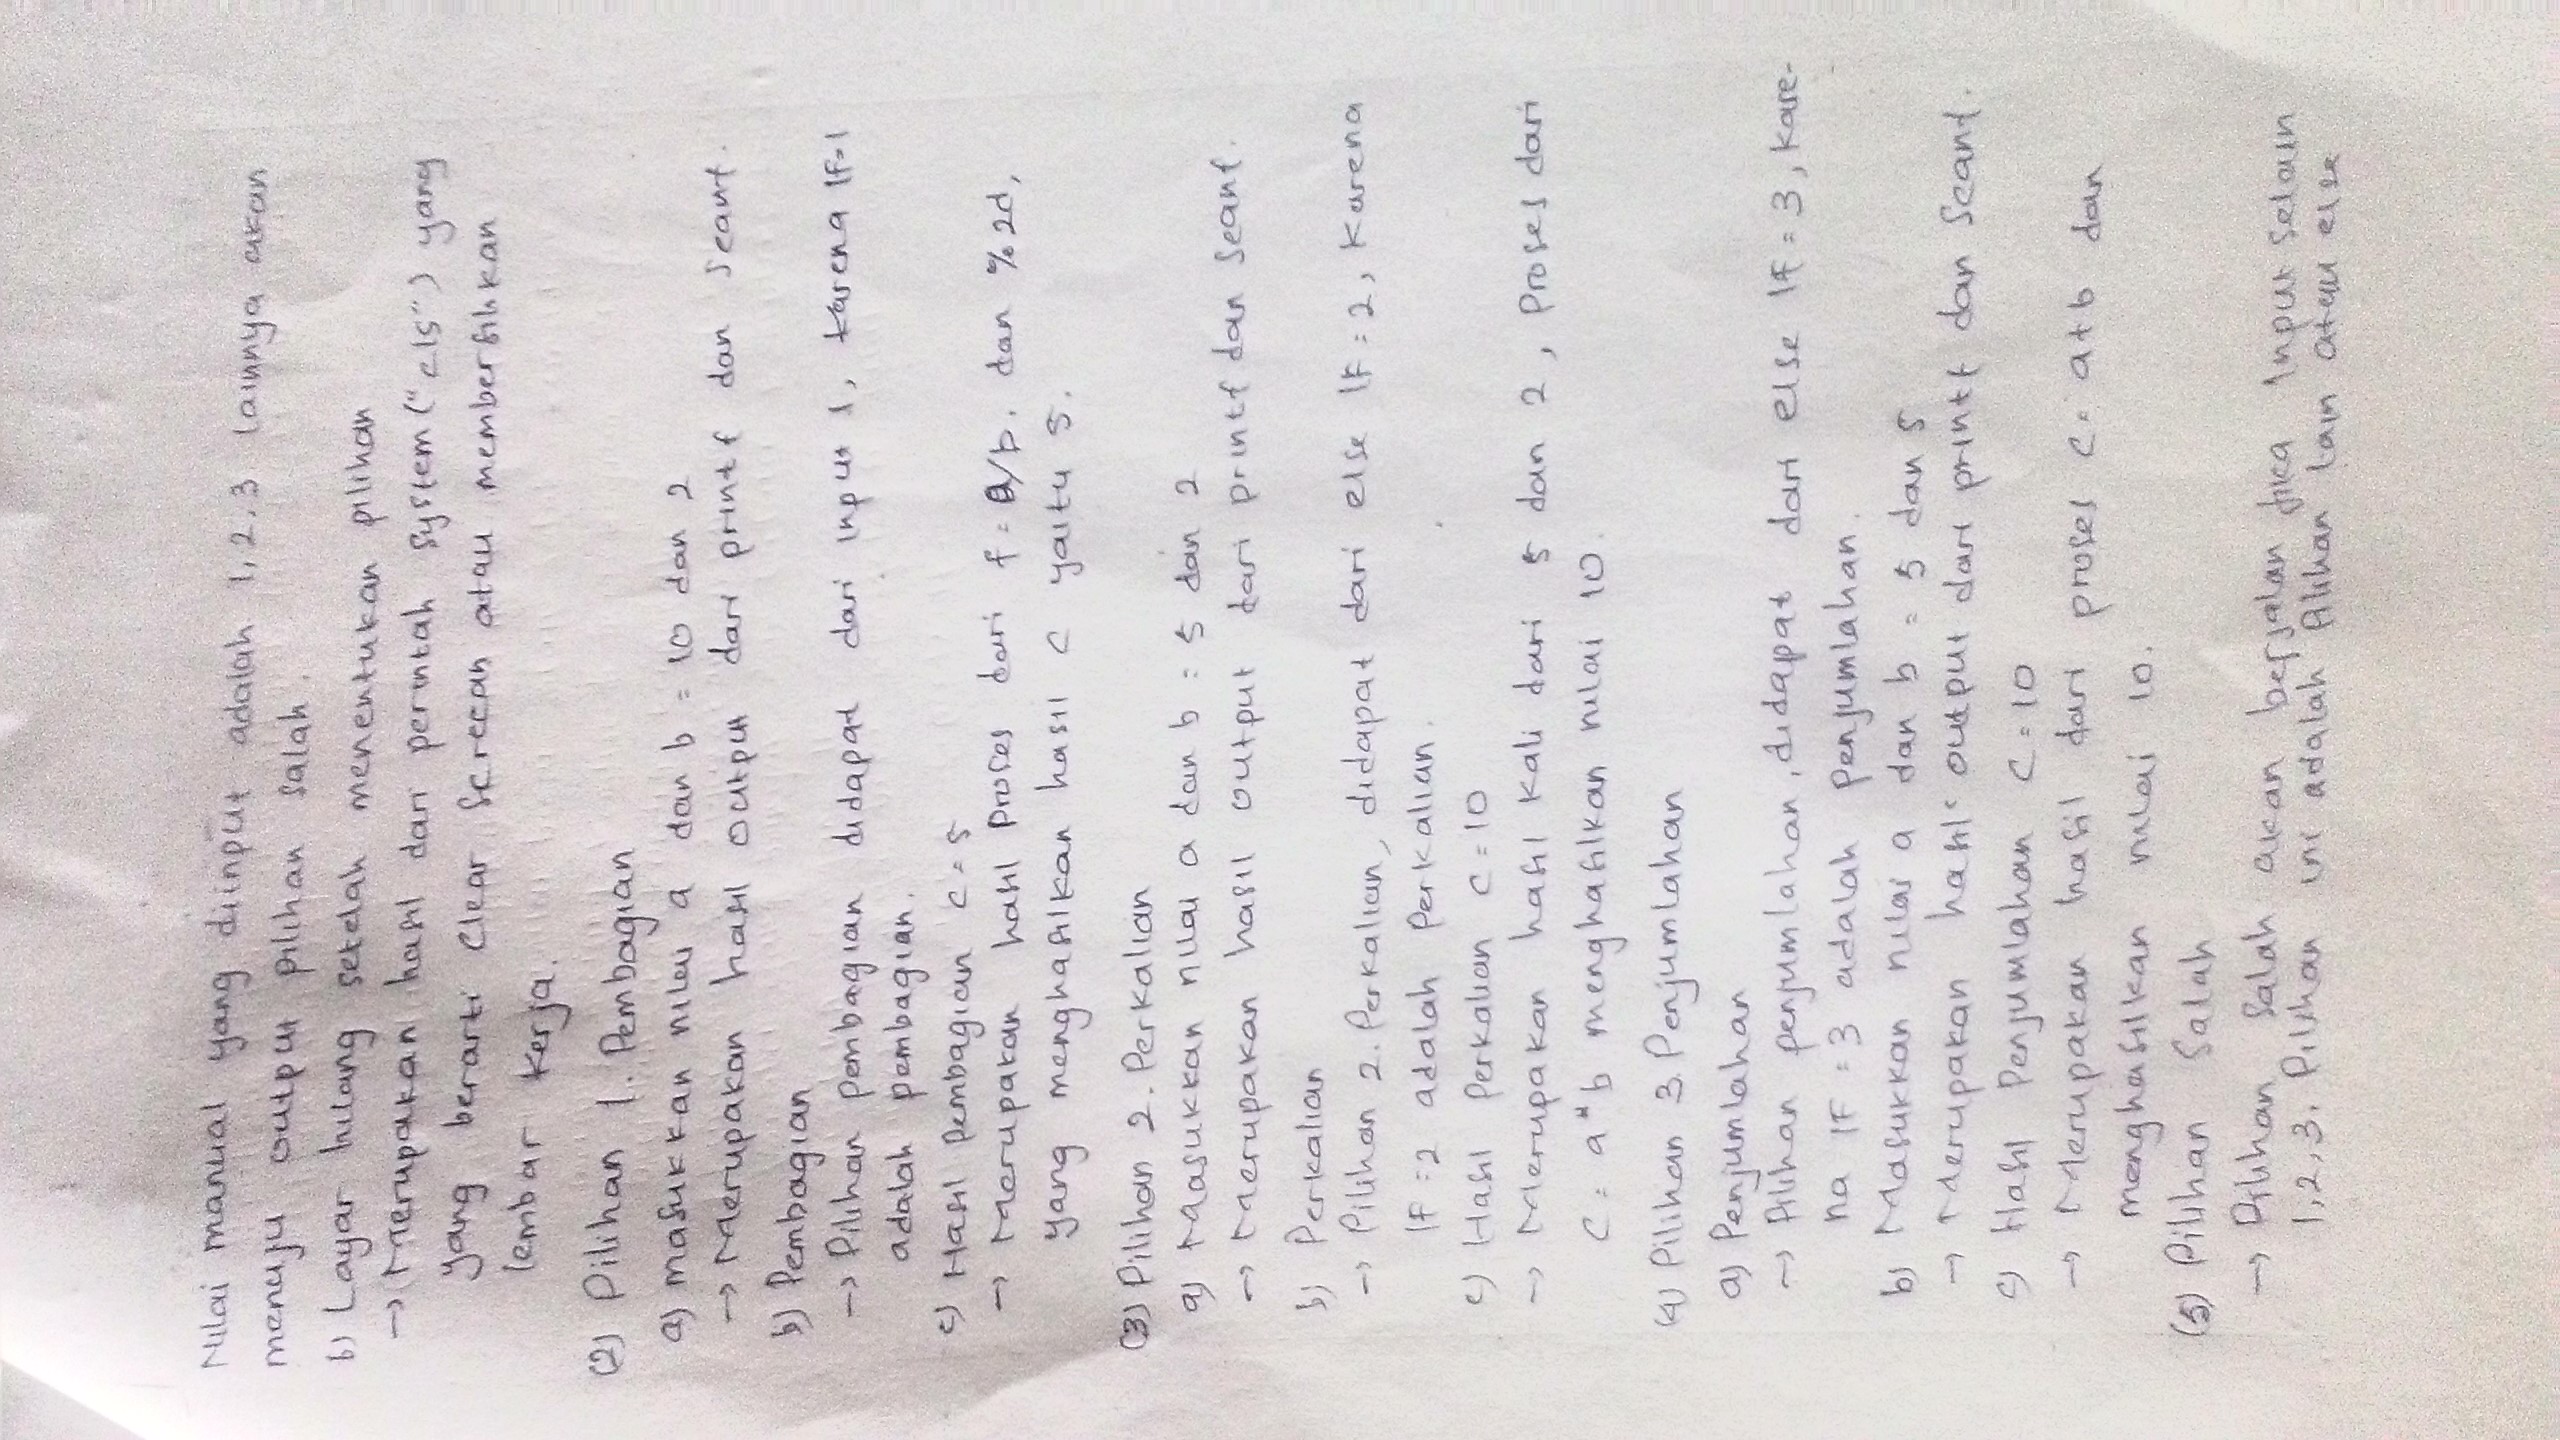 Nilai manual yang diinput adalah 1, 2, 3 lainnya akan
menuju output pilihan salah.
b) Layar hilang setelah menentukan pilihan
→ Merupakan hasil dari perintah system ("cls") yang
yang berarti clear screean atau membersihkan
lembar kerja.
(2) Pilihan 1. Pembagian
a) masukkan nilai a dan b = 10 dan 2
→ Merupakan hasil output dari printf dan scanf.
b) Pembagian
→ Pilihan pembagian didapat dari input 1, karena IF=1
adalah pembagian.
c) Hasil pembagian c = 5
→ Merupakan hasil proses dari f = a/b, dan %2d,
yang menghasilkan hasil c yaitu 5.
(3) Pilihan 2. Perkalian
a) Masukkan nilai a dan b = 5 dan 2
→ Merupakan hasil output dari printf dan scanf.
b) Perkalian
→ Pilihan 2. Perkalian, didapat dari else IF = 2, Karena
IF = 2 adalah Perkalian.
c) Hasil Perkalian c = 10
→ Merupakan hasil kali dari 5 dan 2, Proses dari
c = a*b menghasilkan nilai 10.
(4) Pilihan 3. Penjumlahan
a) Penjumlahan
→ Pilihan penjumlahan, didapat dari else IF = 3, kare-
na IF = 3 adalah penjumlahan.
b) Masukkan nilai a dan b = 5 dan 5
→ Merupakan hasil output dari printf dan Scanf.
c) Hasil Penjumlahan c = 10
→ Merupakan hasil dari proses c = a+b dan
menghasilkan nilai 10.
(5) Pilihan Salah
→ Pilihan Salah akan berjalan jika Input Selain
1, 2, 3. Pilihan ini adalah Pilihan lain atau else